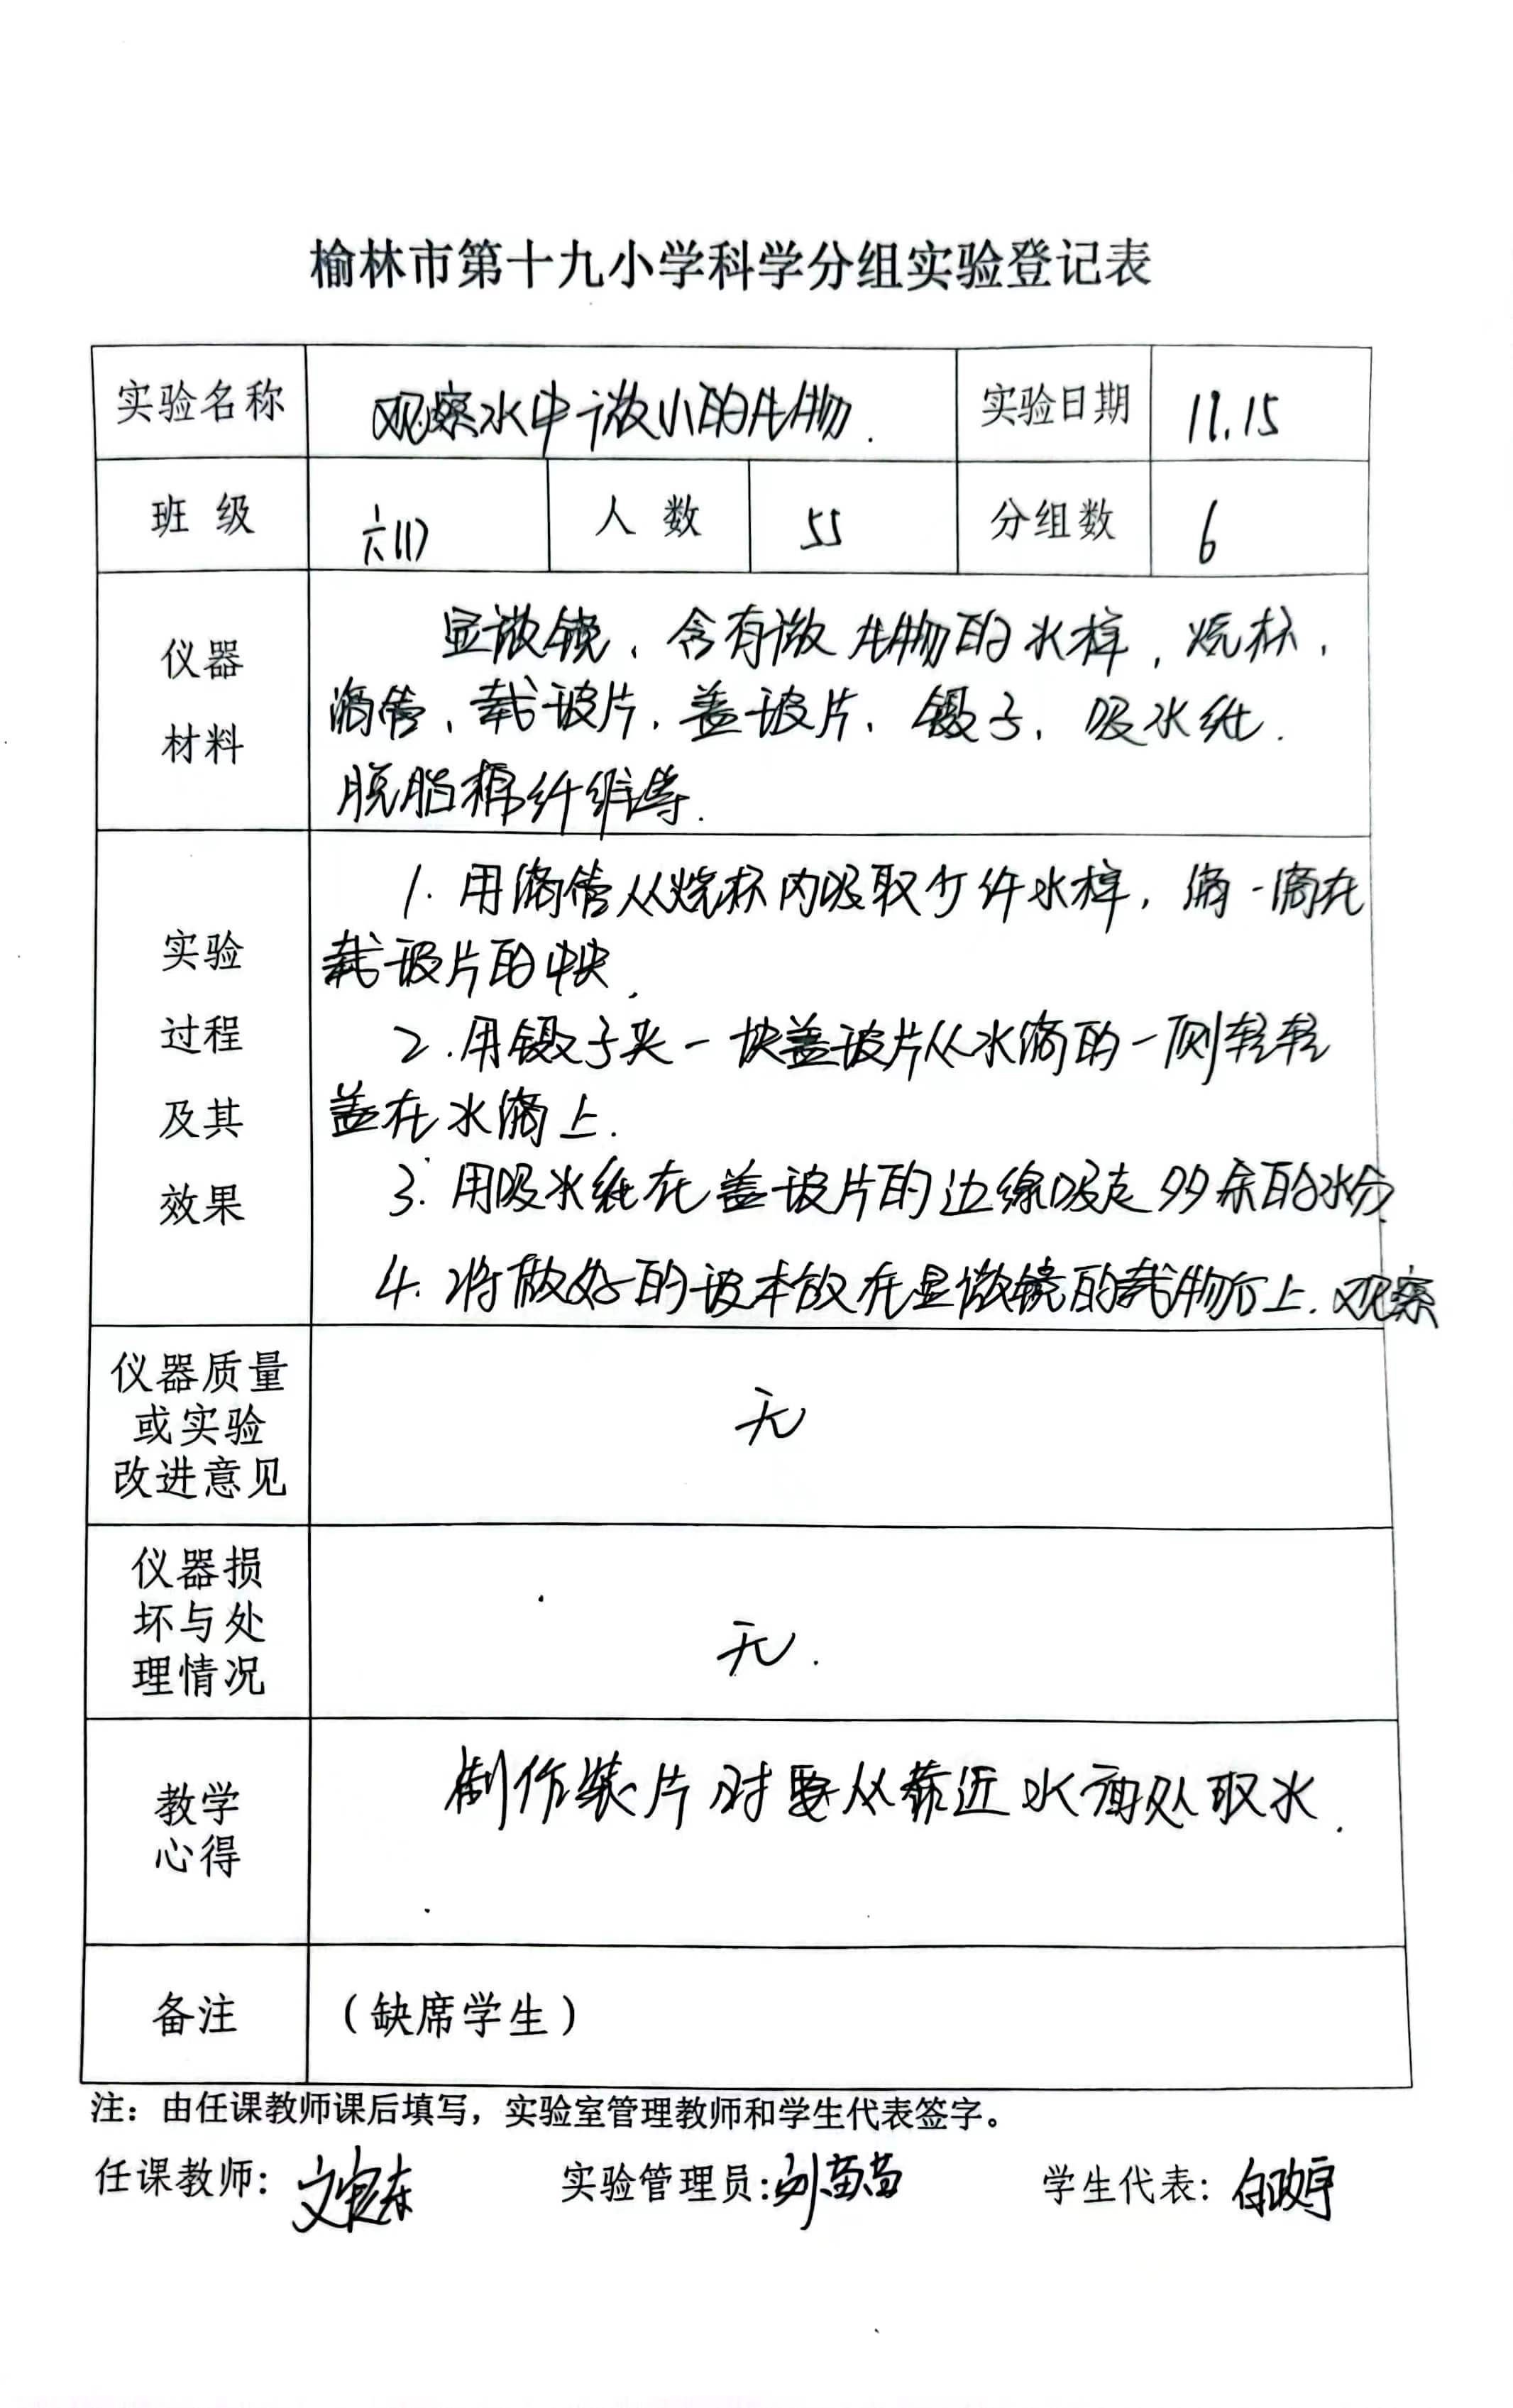 榆林市第十九小学科学分组实验登记表
实验名称 观察水中微小的生物. 实验日期 11.15
班 级 六(1) 人 数 55 分组数 6
仪器
材料
显微镜、含有微生物的水样,烧杯、
滴管、载玻片、盖玻片、镊子、吸水纸.
脱脂棉纤维等.
实验
过程
及其
效果
1. 用滴管从烧杯内吸取少许水样,滴一滴在
载玻片的中央.
2. 用镊子夹一块盖玻片从水滴的一侧轻轻
盖在水滴上.
3. 用吸水纸在盖玻片的边缘吸走多余的水分.
4. 将做好的玻本放在显微镜的载物台上.观察
仪器质量
或实验
改进意见
无
仪器损
坏与处
理情况
无.
教学
心得
制作装片时要从靠近水面处取水.
备注 (缺席学生)
注:由任课教师课后填写,实验室管理教师和学生代表签字。
任课教师: 实验管理员:刘苗苗 学生代表: